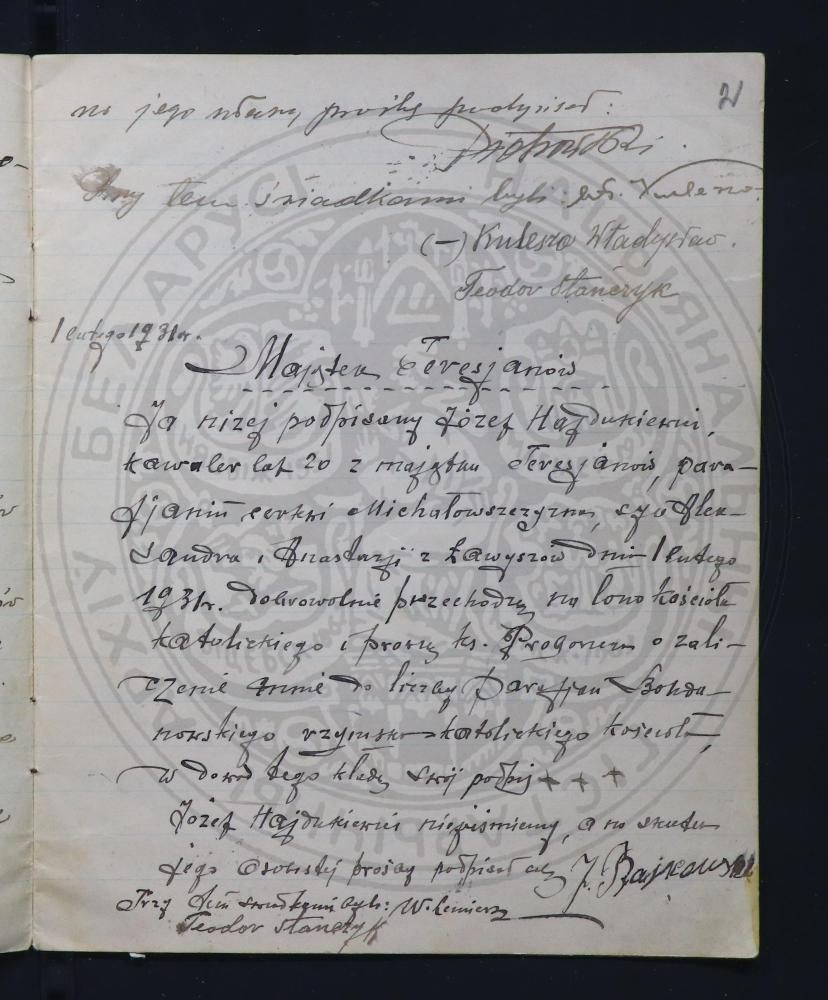 2
na jego własną prośbę podpisał:
Piotrowski.
Przy tem świadkami byli:
(—) Kulesza Władysław.
Teodor Stańczyk
1 lutego 1931 r.
Majątek Teresjanów
Ja niżej podpisany Józef Hajdukiewicz,
kawaler lat 20 z majątku Teresjanów, para-
fjanin cerkwi Michałowszczyzna, syn Alek-
sandra i Anastazji z Ławyszów dnia 1 lutego
1931 r. dobrowolnie przechodzę na łono kościoła
katolickiego i proszę ks. o zali-
czenie mnie do liczby parafjan Bohda-
nowskiego rzymsko-katolickiego kościoła,
w dowód tego kładę swój podpis + + +
Józef Hajdukiewicz niepiśmienny, a na skutek
jego osobistej prośby podpisał
Przy tem świadkami byli:
Teodor Stańczyk
БЕЛАРУСІ НАЦЫЯНАЛЬНЫ ГІСТАРЫЧНЫ АРХІЎ